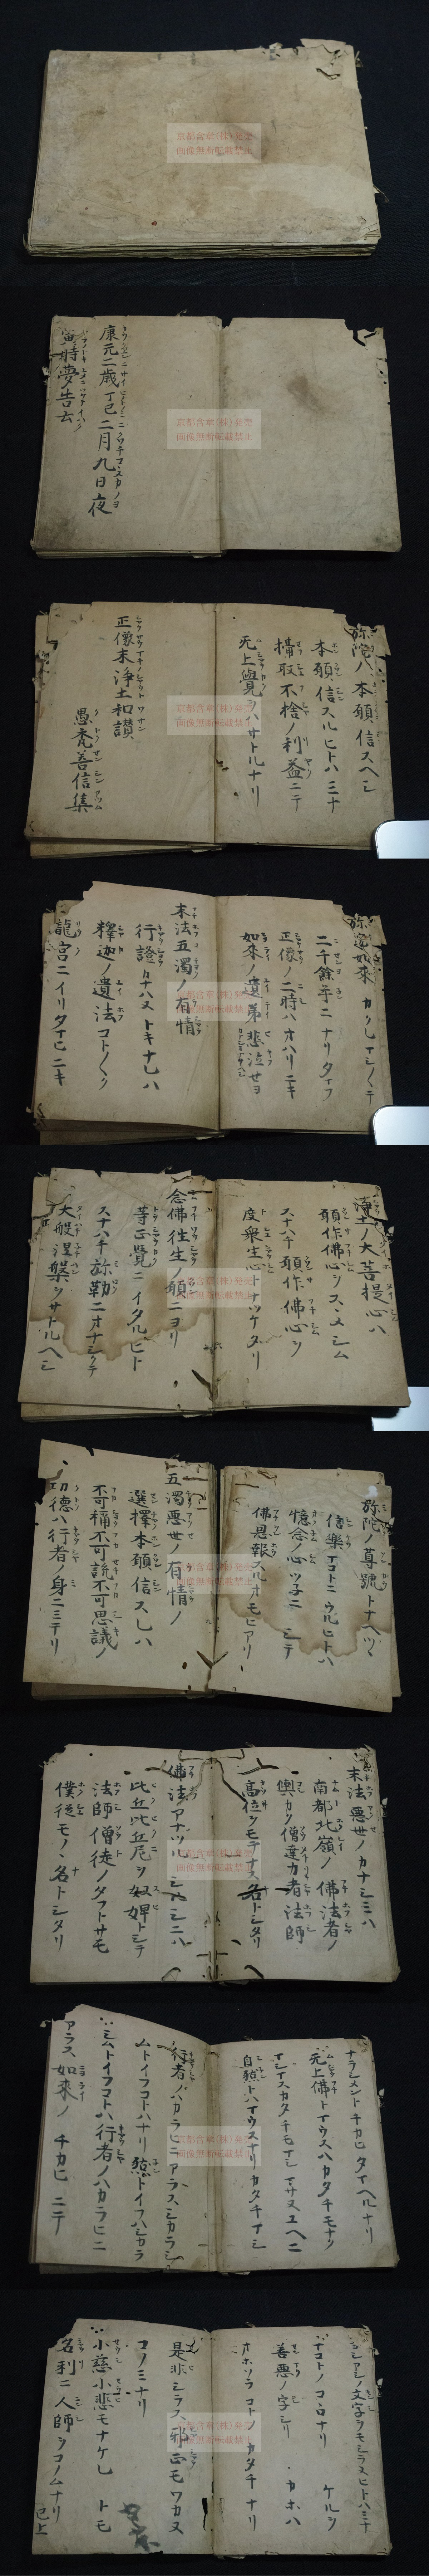 康元二歳丁巳二月九日夜
寅時夢告云
弥陀ノ本願信スヘシ
本願信スルヒトハミナ
摂取不捨ノ利益ニテ
无上覺ヲハサトルナリ
正像末浄土和讃
愚禿善信集
釋迦如来カクレマシ〱テ
二千餘年ニナリタマフ
正像ノ二時ハオハリニキ
如来ノ遺弟悲泣セヨ
末法五濁ノ有情ノ
行證カナハヌトキナレハ
釋迦ノ遺法コト〱ク
龍宮ニイリタマヒニキ
浄土ノ大菩提心ハ
願作佛心ヲスヽメシム
スナハチ願作佛心ヲ
度衆生心トナツケタリ
念佛往生ノ願ニヨリ
等正覺ニイタルヒト
スナハチ弥勒ニオナシクテ
大般涅槃ヲサトルヘシ
弥陀ノ尊號トナヘツヽ
信樂マコトニウルヒトハ
憶念ノ心ツネニシテ
佛恩報スルオモヒアリ
五濁悪世ノ有情ノ
選擇本願信スレハ
不可稱不可説不可思議ノ
功徳ハ行者ノ身ニミテリ
末法悪世ノカナシミハ
南都北嶺ノ佛法者ノ
輿カク僧達力者法師
高位ヲモテナス名トシタリ
佛法アナツルシルシニハ
比丘比丘尼ヲ奴婢トシテ
法師僧徒ノタフトサモ
僕従モノヽ名トシタリ
ナラシメントチカヒタマヘルナリ
无上佛トイウスハカタチモナク
マシマスカタチモマシマサヌユヘニ
自然トハイウスナリカタチマシ
行者ノハカラヒニアラスシカラシ
ムトイフコトハナリ然トイフハシカラ
シムトイフコトハ行者ノハカラヒニ
アラス如来ノチカヒニテ
ヨシアシノ文字ヲモシラヌヒトハミナ
マコトノコヽロナリケルヲ
善悪ノ字シリカホハ
オホソラコトノカタチナリ
是非シラス邪正モワカヌ
コノミナリ
小慈小悲モナケレトモ
名利ニ人師ヲコノムナリ
已上
京都含章(株)発売
画像無断転載禁止